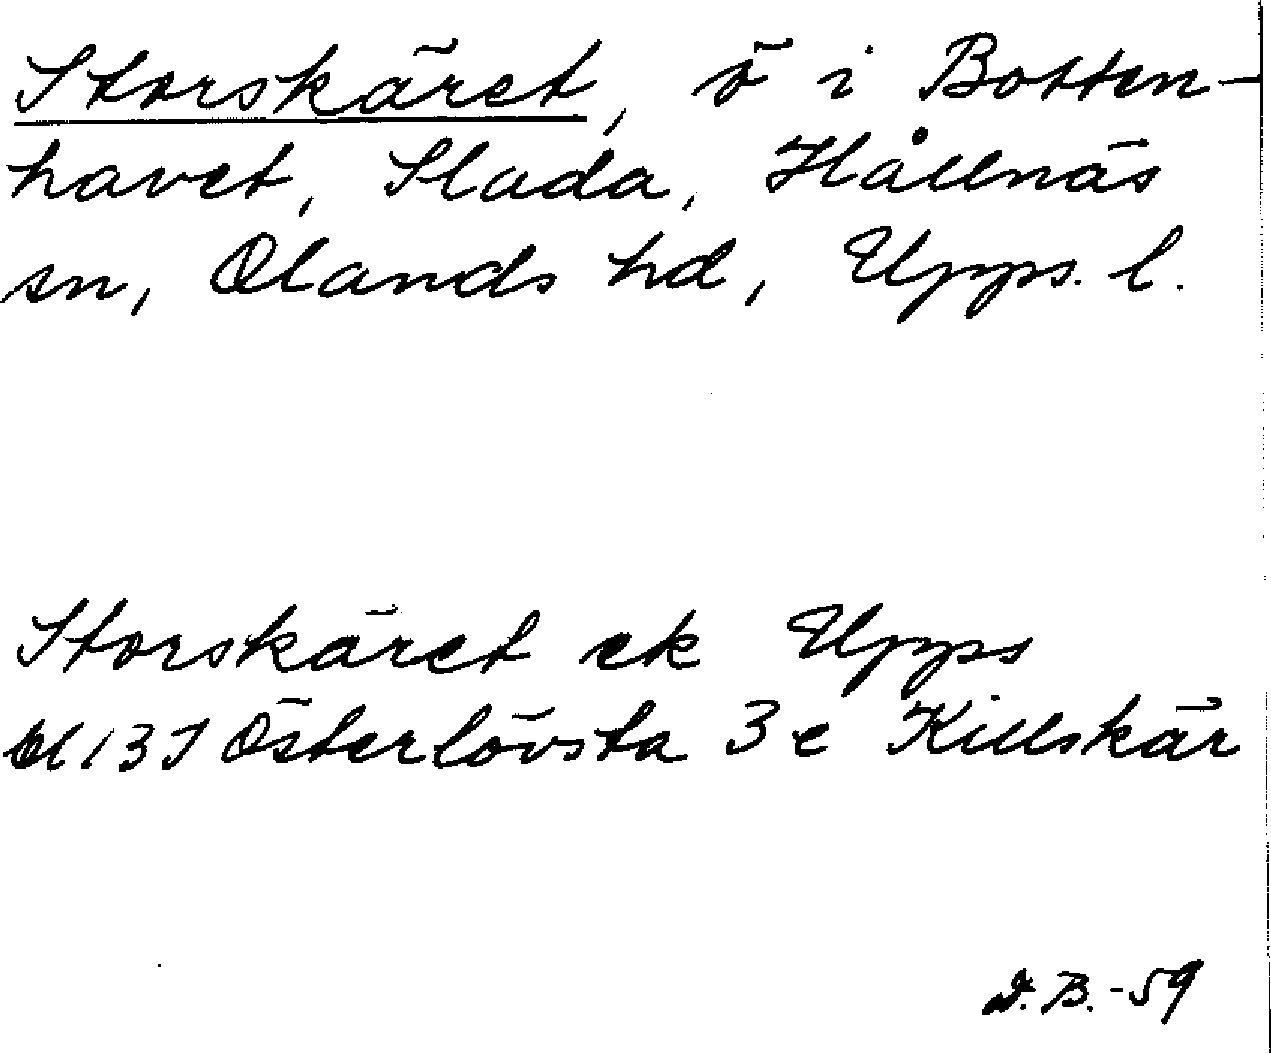 Storskäret, ö i Botten-
havet, Slada, Hållnäs
sn, Olands hd, Upps. l.
Storskäret ek Upps
13 I Österlövsta 3 e Killskär
D.B.-59